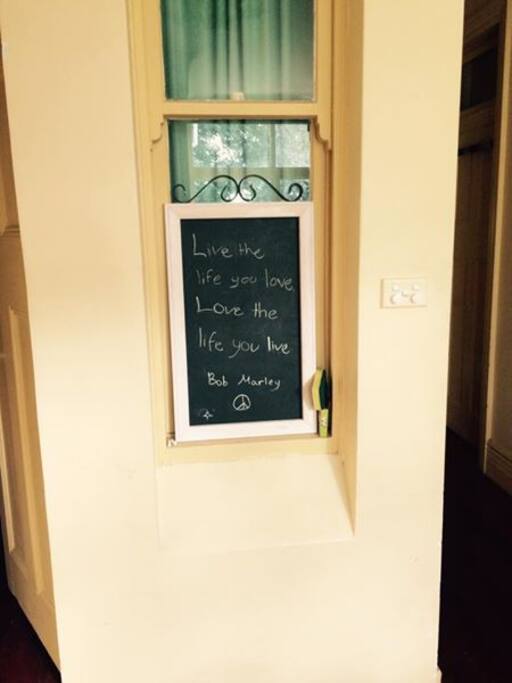 Live the
life you love,
Love the
life you live
Bob Marley